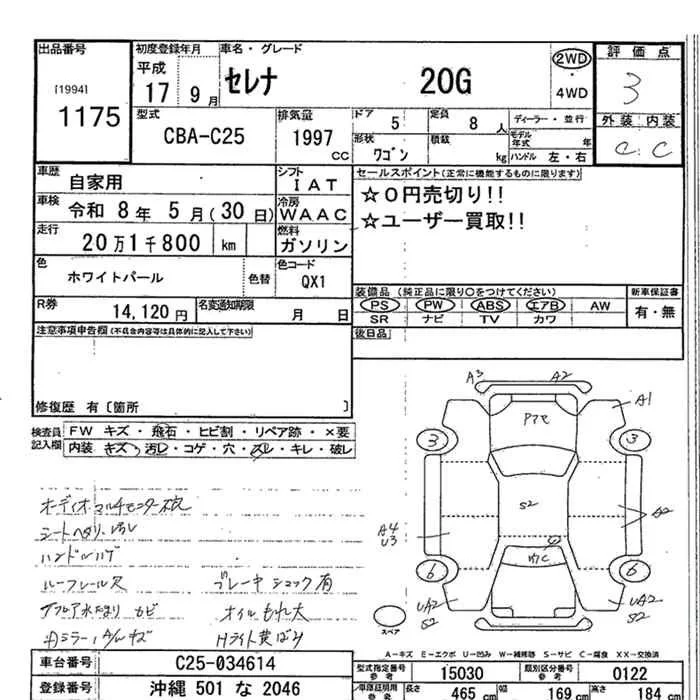 出品番号 初度登録年月 車名・グレード 評価点
[1994] 平成 セレナ 20G 2WD 3
1175 17 9月 ・ 4WD
型式 排気量 ドア 5 定員 8人 ディーラー・並行 外装 内装
CBA-C25 1997cc 形状 ワゴン 積載 kg モデル年式 年 C C
ハンドル 左・右
車歴 自家用 シフト IAT セールスポイント(正常に機能するものに限ります)
車検 令和 8年 5月(30日) 冷房 WAAC ☆0円売切り!!
走行 20万1千800 km 燃料 ガソリン ☆ユーザー買取!!
色 ホワイトパール 色替 色コード QX1
装備品(純正品に限り○をつけてください) 新車保証書
R券 14,120円 名変通知期限 月 日 PS PW ABS エアB AW 有・無
SR ナビ TV カワ
注意事項申告欄(不具合内容等は具体的に記入して下さい) 後日品
修復歴 有〔箇所 〕
検査員記入欄 FW キズ・飛石・ヒビ割・リペア跡・×要
内装 キズ・汚レ・コゲ・穴・スレ・キレ・破レ
A3 A2 A1
3 3
S2
A4 A2
U3
6 6
UA2 UA2
S2 S2
スペア
シートヘタリ、汚レ
ハンドルハゲ
ルーフレール欠 ブレーキ ショック有
カビ オイルもれ大
Hライト黄ばみ
A-キズ E-エクボ U-凹み W-補修跡 S-サビ C-腐食 XX-交換済
車台番号 C25-034614 型式指定番号 参考 15030 類別区分番号 参考 0122
登録番号 沖縄 501 な 2046 車庫証明用 参考 長さ 465 cm 幅 169 cm 高さ 184 cm